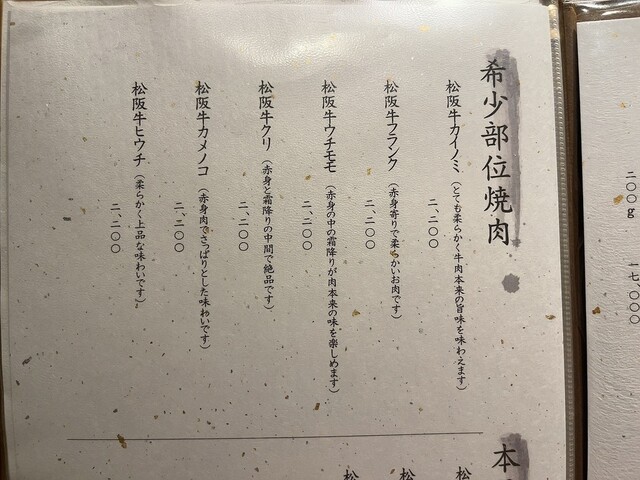 二〇〇g 一七、〇〇〇
希少部位焼肉
松阪牛カイノミ（とても柔らかく牛肉本来の旨味を味わえます）
二、二〇〇
松阪牛フランク（赤身寄りで柔らかいお肉です）
二、二〇〇
松阪牛ウチモモ（赤身の中の霜降りが肉本来の味を楽しめます）
二、二〇〇
松阪牛クリ（赤身と霜降りの中間で絶品です）
二、二〇〇
松阪牛カメノコ（赤身肉でさっぱりとした味わいです）
二、二〇〇
松阪牛ヒウチ（柔らかく上品な味わいです）
二、二〇〇
本
松
松
松